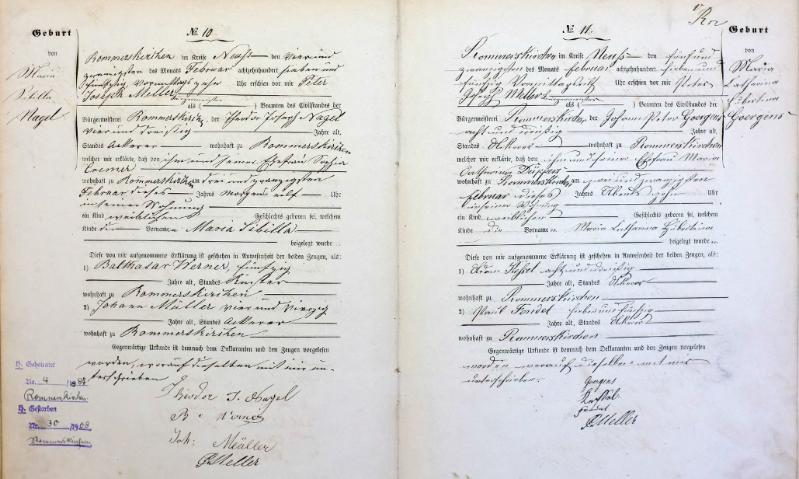 № 10
Geburt
von
Maria
Sibilla
Nagel
Rommerskirchen im Kreise Neuß den vier und
zwanzigsten des Monats Februar achtzehnhundert sieben und
fünfzig Vormittags zehn Uhr erschien vor mir Peter
Joseph Meller
als Beamten des Civilstandes der
Bürgermeisterei Rommerskirchen der Theodor Joseph Nagel
vier und dreißig Jahre alt,
Standes Ackerer wohnhaft zu Rommerskirchen
welcher mir erklärte, daß von ihm und seiner Ehefrau Sophia
Cremer
wohnhaft zu Rommerskirchen drei und zwanzigsten
Februar dieses Jahres Morgens elf Uhr
in seiner Wohnung
ein Kind weiblichen Geschlechts geboren sei, welchem
Kinde die Vornamen Maria Sibilla
beigelegt wurde
Diese von mir aufgenommene Erklärung ist geschehen in Anwesenheit der beiden Zeugen, als:
1) Balthasar Werner, fünfzig
Jahre alt, Standes Küster
wohnhaft zu Rommerskirchen
2) Johann Müller vier und vierzig
Jahre alt, Standes Ackerer
wohnhaft zu Rommerskirchen
Gegenwärtige Urkunde ist demnach dem Deklaranten und den Zeugen vorgelesen
worden, worauf dieselben mit mir un-
terschrieben
Theodor J. Nagel
B.
Joh. Müller
Meller
Geheiratet
Nr. 4
Rommerskirchen
Gestorben
Nr. 30
Rommerskirchen
№ 11.
Geburt
von
Maria
Catharina
Hubertina
Goergens
Rommerskirchen im Kreise Neuß den fünf und
zwanzigsten des Monats Februar achtzehnhundert sieben und
fünfzig Vormittags Uhr erschien vor mir Peter
Joseph Meller
als Beamten des Civilstandes der
Bürgermeisterei Rommerskirchen der Johann Peter Goergens
acht und dreißig Jahre alt,
Standes Ackerer wohnhaft zu Rommerskirchen
welcher mir erklärte, daß von ihm und seiner Ehefrau Maria
Catharina
wohnhaft zu Rommerskirchen zwei und zwanzigsten
Februar dieses Jahres Abends zehn Uhr
in seiner Wohnung
ein Kind weiblichen Geschlechts geboren sei, welchem
Kinde die Vornamen Maria Catharina Hubertina
beigelegt wurde
Diese von mir aufgenommene Erklärung ist geschehen in Anwesenheit der beiden Zeugen, als:
1) acht und dreißig
Jahre alt, Standes Ackerer
wohnhaft zu Rommerskirchen
2) sieben und fünfzig
Jahre alt, Standes Ackerer
wohnhaft zu Rommerskirchen
Gegenwärtige Urkunde ist demnach dem Deklaranten und den Zeugen vorgelesen
worden worauf dieselben mit mir
unterschrieben.
Meller